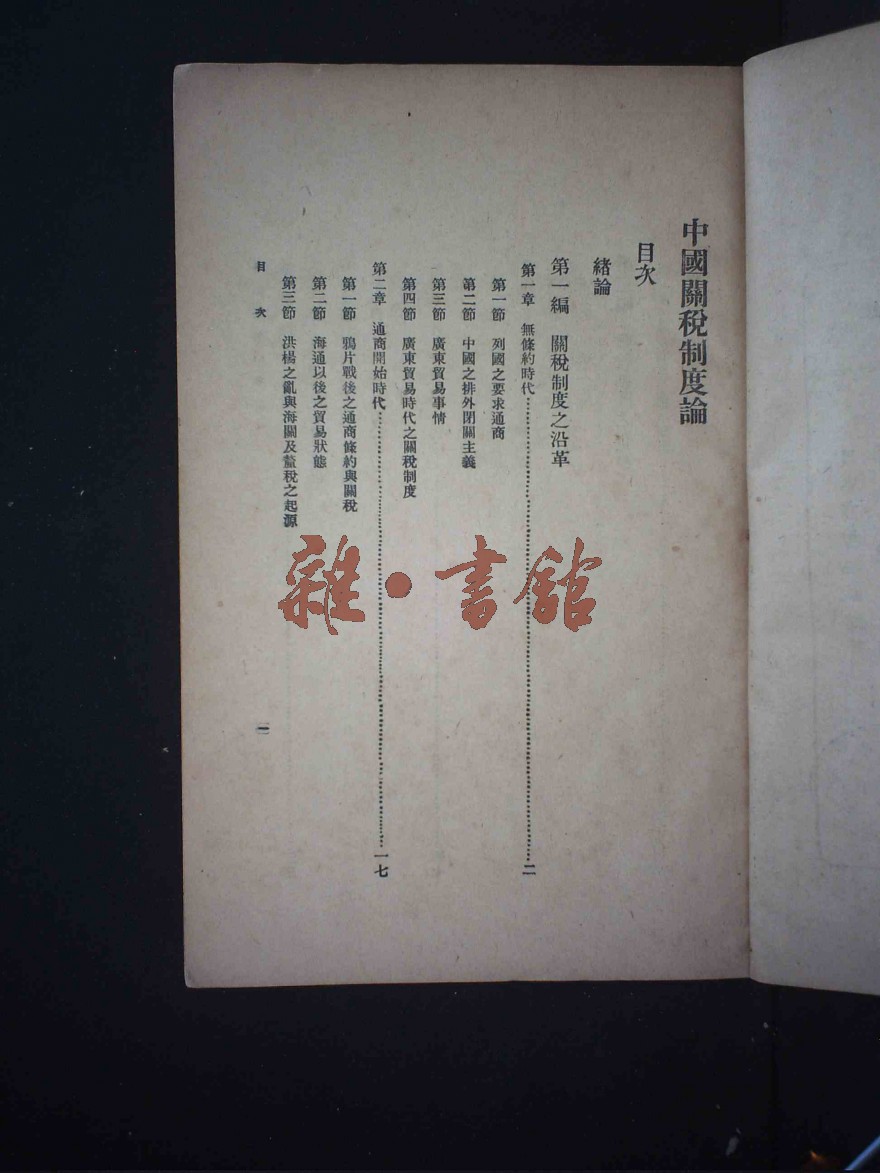 中國關稅制度論
目次
緒論
第一編　關稅制度之沿革
第一章　無條約時代……二
第一節　列國之要求通商
第二節　中國之排外閉關主義
第三節　廣東貿易事情
第四節　廣東貿易時代之關稅制度
第二章　通商開始時代……一七
第一節　鴉片戰後之通商條約與關稅
第二節　海通以後之貿易狀態
第三節　洪楊之亂與海關及釐稅之起源
目次
一
雜·書館